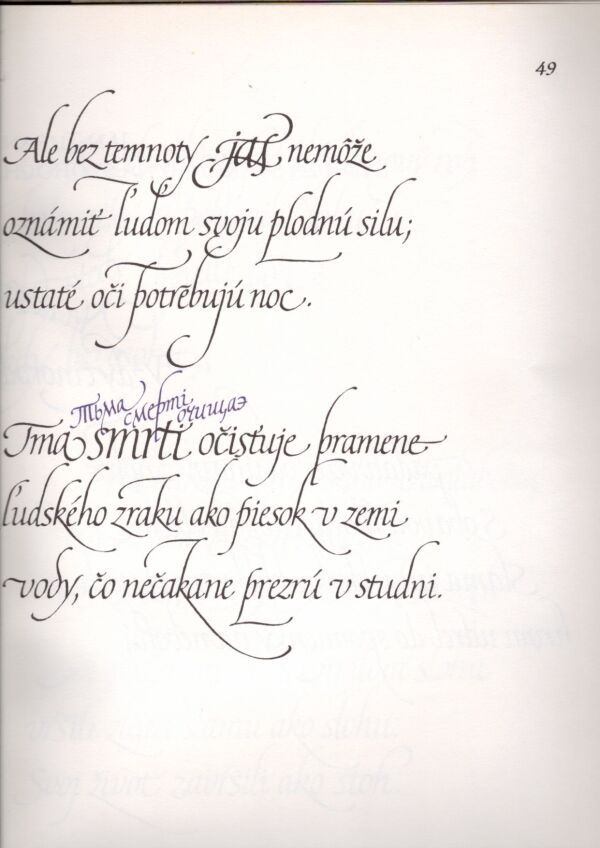 49
Ale bez temnoty jas nemôže
oznámiť ľudom svoju plodnú silu;
ustaté oči potrebujú noc.
Тьма
смерті
очищаэ
Tma smrti očisťuje pramene
ľudského zraku ako piesok v zemi
vody, čo nečakane prezrú v studni.